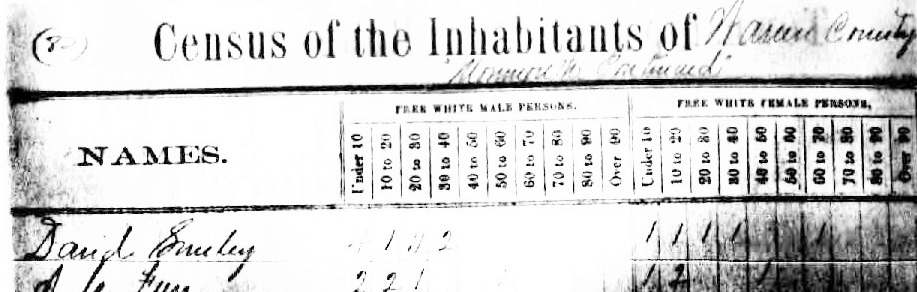 (8
Census of the Inhabitants of Warren County
Continued
NAMES.
FREE WHITE MALE PERSONS.
Under 10
10 to 20
20 to 30
30 to 40
40 to 50
50 to 60
60 to 70
70 to 80
80 to 90
Over 90
FREE WHITE FEMALE PERSONS,
Under 10
10 to 20
20 to 30
30 to 40
40 to 50
50 to 60
60 to 70
70 to 80
80 to 90
Over 90
David 1 2 1 1 1 1 1
2 2 1 1 2 1